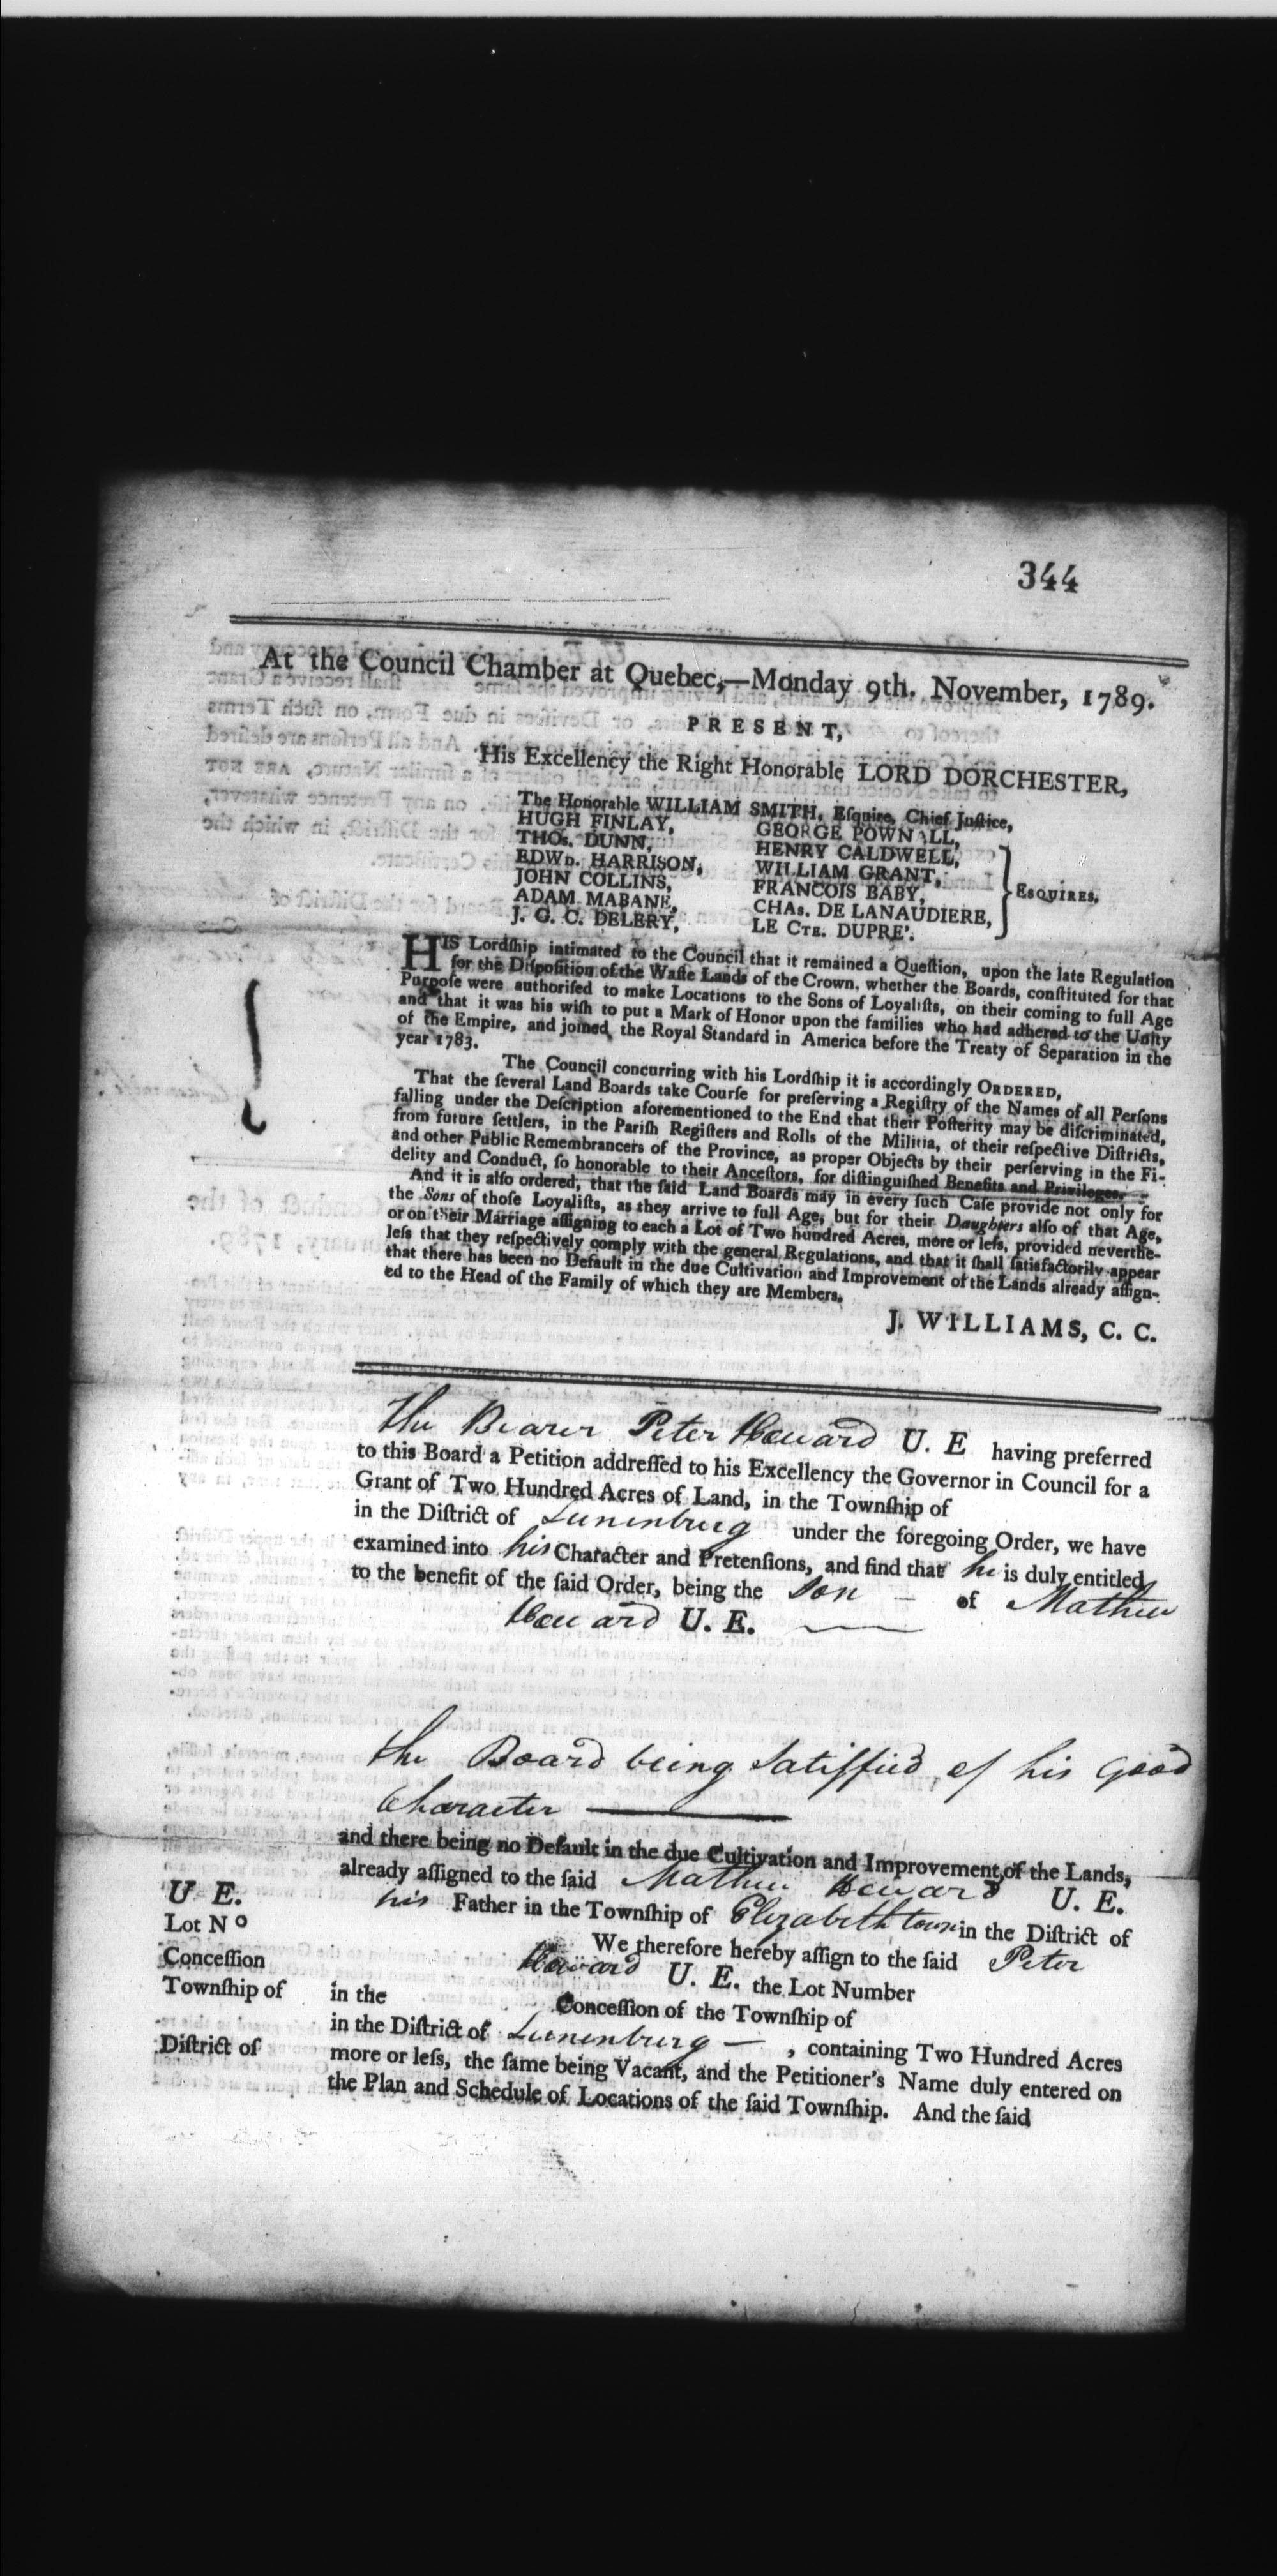 344
At the Council Chamber at Quebec,—Monday 9th. November, 1789.
PRESENT,
His Excellency the Right Honorable LORD DORCHESTER,
The Honorable WILLIAM SMITH, Eſquire, Chief Juſtice,
HUGH FINLAY, GEORGE POWNALL,
THOs. DUNN, HENRY CALDWELL,
EDWD. HARRISON, WILLIAM GRANT,
JOHN COLLINS, FRANCOIS BABY,
ADAM MABANE, CHAs. DE LANAUDIERE,
J. G. C. DELERY, LE CTE. DUPRE'.
ESQUIRES.
HIS Lordſhip intimated to the Council that it remained a Queſtion, upon the late Regulation
for the Diſpoſition of the Waſte Lands of the Crown, whether the Boards, conſtituted for that
Purpoſe were authoriſed to make Locations to the Sons of Loyaliſts, on their coming to full Age
and that it was his wiſh to put a Mark of Honor upon the families who had adhered to the Unity
of the Empire, and joined the Royal Standard in America before the Treaty of Separation in the
year 1783.
The Council concurring with his Lordſhip it is accordingly ORDERED,
That the ſeveral Land Boards take Courſe for preſerving a Regiſtry of the Names of all Perſons
falling under the Deſcription aforementioned to the End that their Poſterity may be diſcriminated,
from future ſettlers, in the Pariſh Regiſters and Rolls of the Militia, of their reſpective Diſtricts,
and other Public Remembrancers of the Province, as proper Objects by their perſerving in the Fi-
delity and Conduct, ſo honorable to their Anceſtors, for diſtinguiſhed Benefits and Privileges.
And it is alſo ordered, that the ſaid Land Boards may in every ſuch Caſe provide not only for
the Sons of thoſe Loyaliſts, as they arrive to full Age, but for their Daughters alſo of that Age,
or on their Marriage aſſigning to each a Lot of Two hundred Acres, more or leſs, provided neverthe-
leſs that they reſpectively comply with the general Regulations, and that it ſhall ſatisfactorily appear
that there has been no Default in the due Cultivation and Improvement of the Lands already aſſign-
ed to the Head of the Family of which they are Members.
J. WILLIAMS, C. C.
The Bearer Peter Heward U. E having preferred
to this Board a Petition addreſſed to his Excellency the Governor in Council for a
Grant of Two Hundred Acres of Land, in the Townſhip of
in the Diſtrict of Lunenburg under the foregoing Order, we have
examined into his Character and Pretenſions, and find that he is duly entitled
to the benefit of the ſaid Order, being the Son — of Mathew
Heward U. E.
The Board being Satiſfied of his Good
Character
and there being no Default in the due Cultivation and Improvement of the Lands,
already aſſigned to the ſaid Mathew Heward U. E.
his Father in the Townſhip of Elizabeth town in the Diſtrict of
We therefore hereby aſſign to the ſaid Peter
Heward U. E. the Lot Number
in the Conceſſion of the Townſhip of
in the Diſtrict of Lunenburg — , containing Two Hundred Acres
more or leſs, the ſame being Vacant, and the Petitioner's Name duly entered on
the Plan and Schedule of Locations of the ſaid Townſhip. And the ſaid
U E.
Lot No
Conceſſion
Townſhip of
Diſtrict of